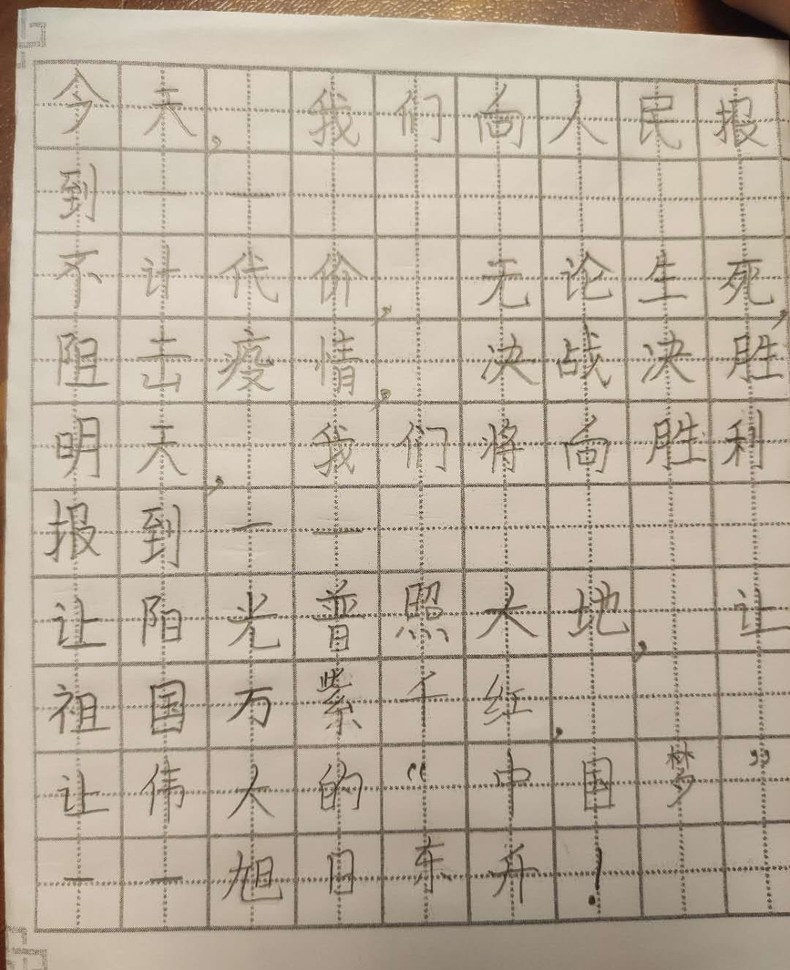 今天，我们向人民报
到——
不计代价，无论生死，
阻击疫情，决战决胜
明天，我们将向胜利
报到——
让阳光普照大地，让
祖国万紫千红，
让伟大的“中国梦”
——旭日东升！